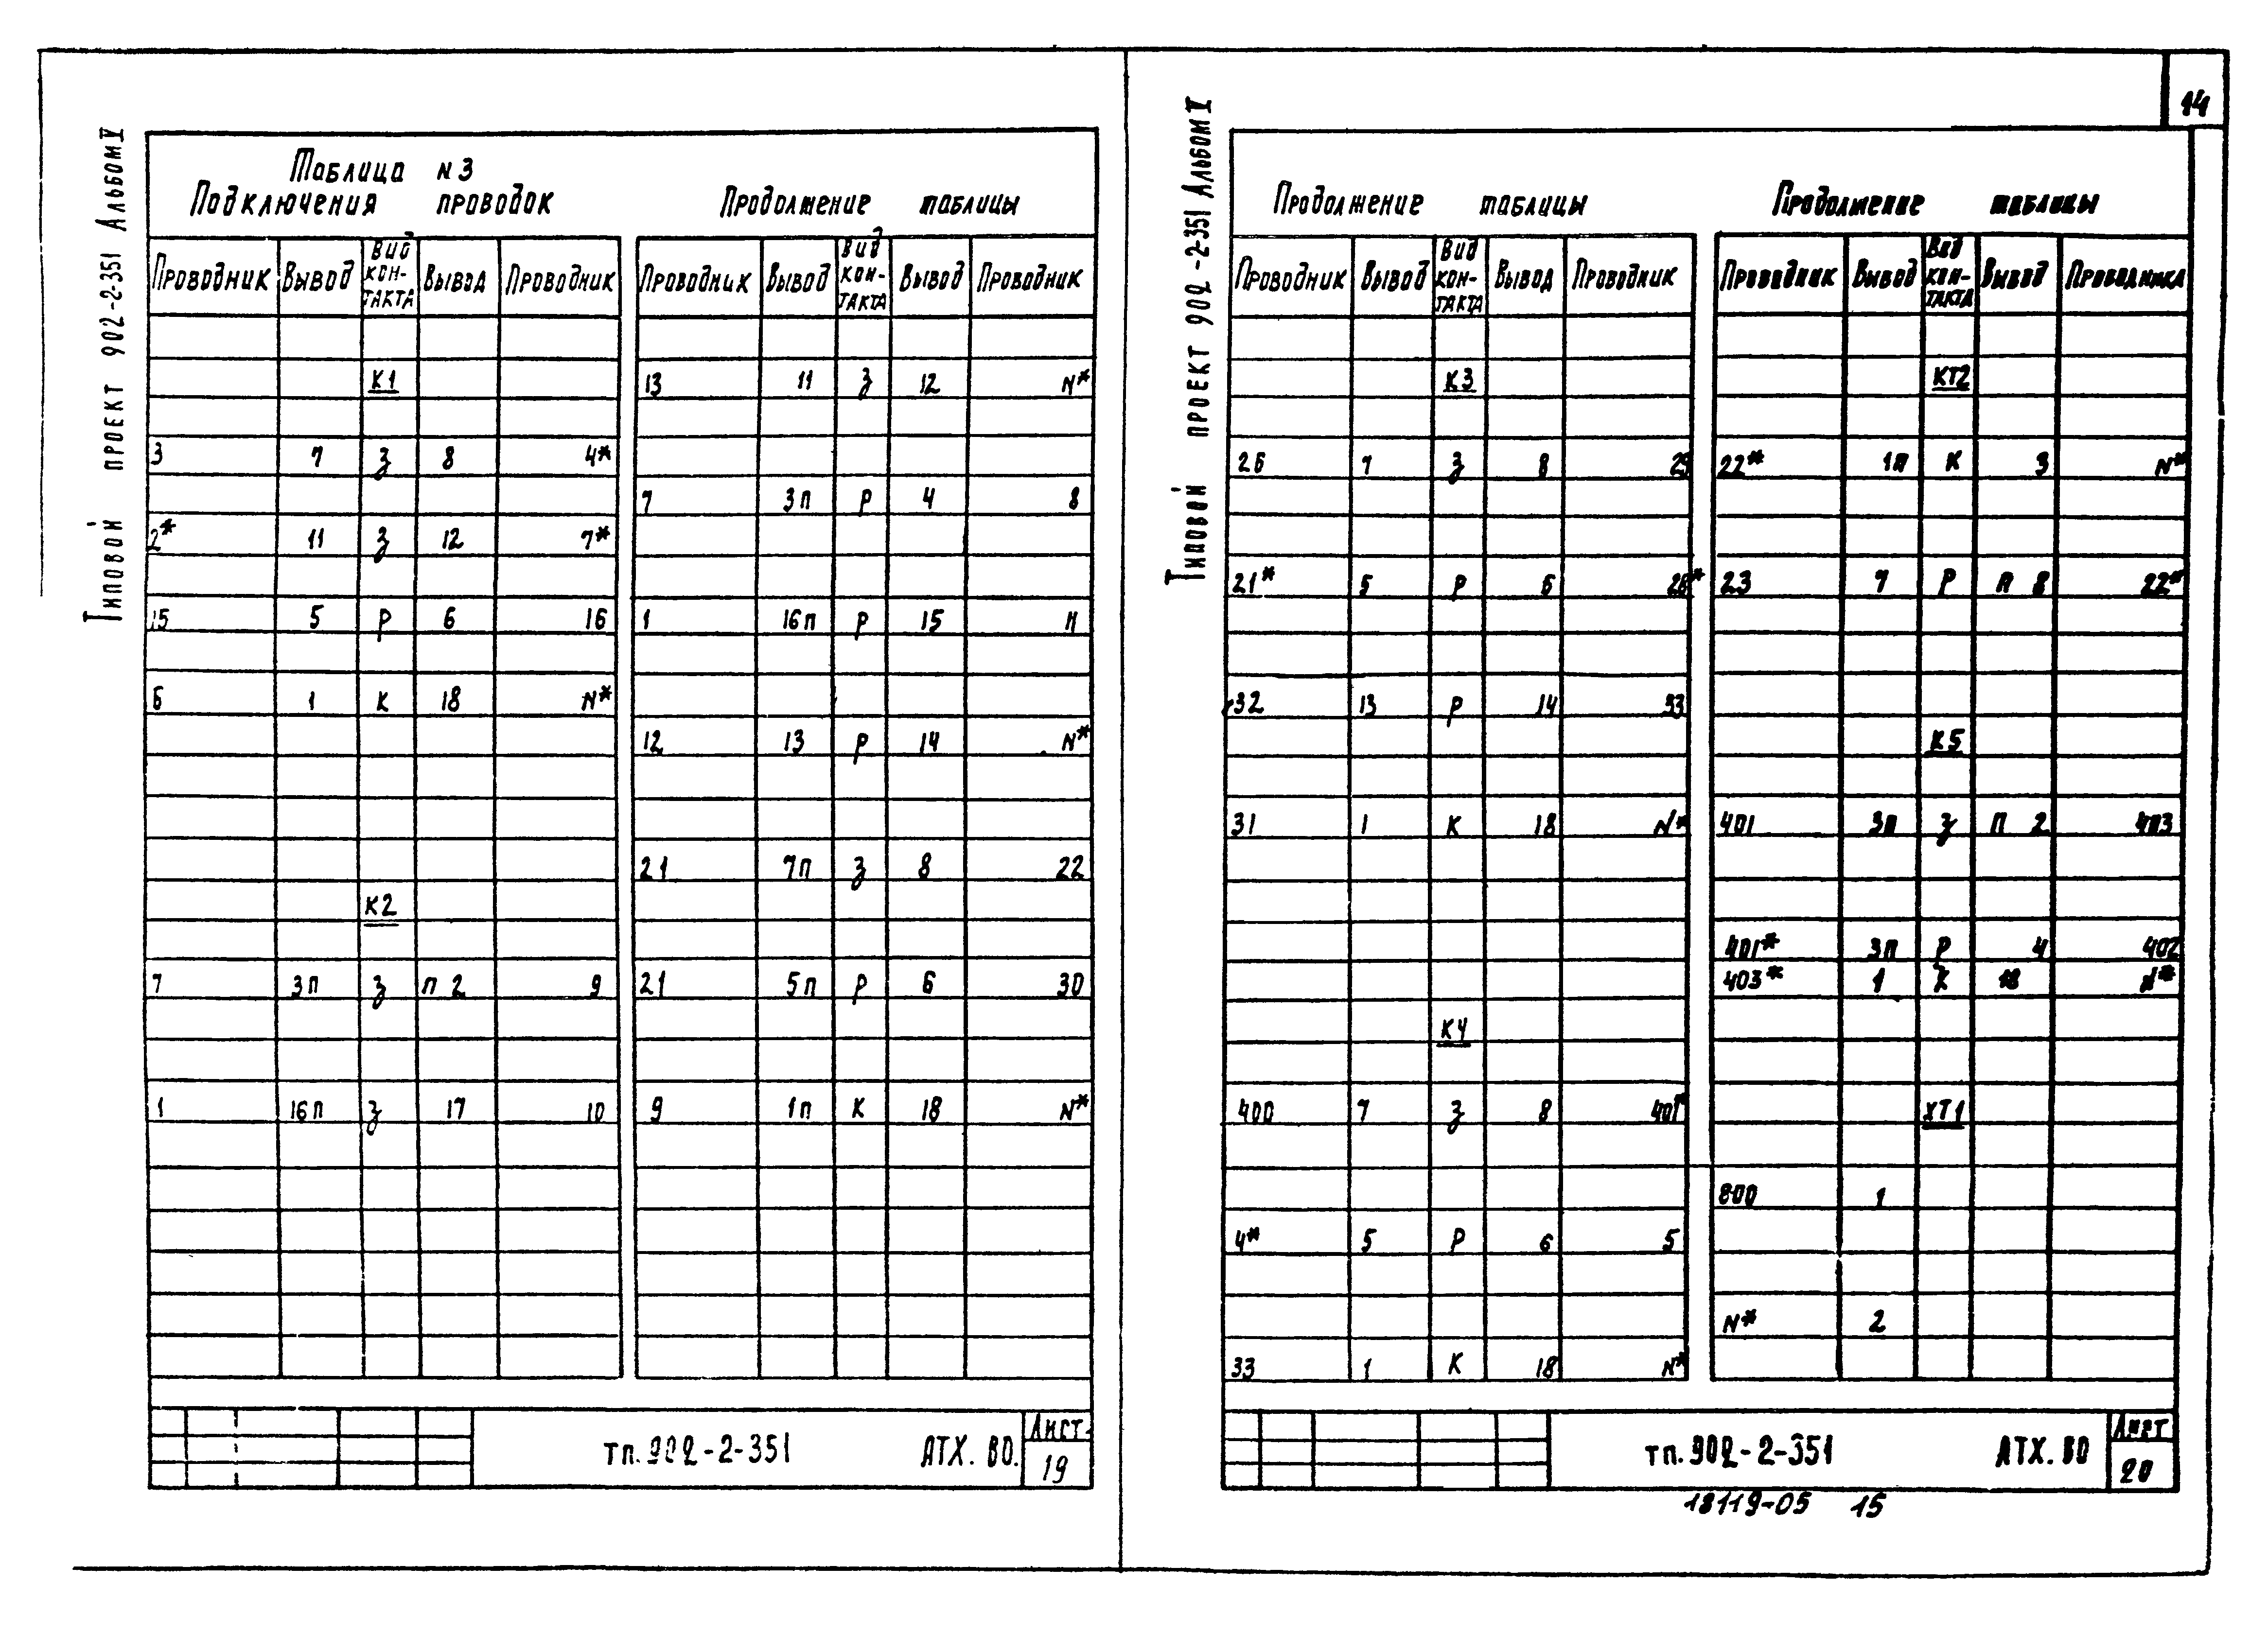 14
Типовой проект 902-2-351 Альбом V
Таблица N 3
Подключения проводок
Проводник Вывод Вид кон-такта Вывод Проводник
К1
3 7 З 8 4*
2* 11 З 12 7*
15 5 Р 6 16
6 1 К 18 N*
К2
7 3п З п 2 9
1 16п З 17 10
Продолжение таблицы
Проводник Вывод Вид кон-такта Вывод Проводник
13 11 З 12 N*
7 3п Р 4 8
1 16п Р 15 11
12 13 Р 14 N*
21 7п З 8 22
21 5п Р 6 30
9 1п К 18 N*
тп.902-2-351 АТХ. ВО. Лист
19
Типовой проект 902-2-351 Альбом V
Продолжение таблицы
Проводник Вывод Вид кон-такта Вывод Проводник
К3
26 7 З 8 29
21* 5 Р 6 26*
32 13 Р 14 33
31 1 К 18 N*
К4
400 7 З 8 401*
4* 5 Р 6 5
33 1 К 18 N*
Продолжение таблицы
Проводник Вывод Вид кон-такта Вывод Проводника
КТ2
22* 1п К 3 N*
23 7 Р п 8 22*
К5
401 3п З п 2 403
401* 3п Р 4 402
403* 1 К 18 N*
ХТ1
800 1
N* 2
тп.902-2-351 АТХ. ВО Лист
20
18119-05 15